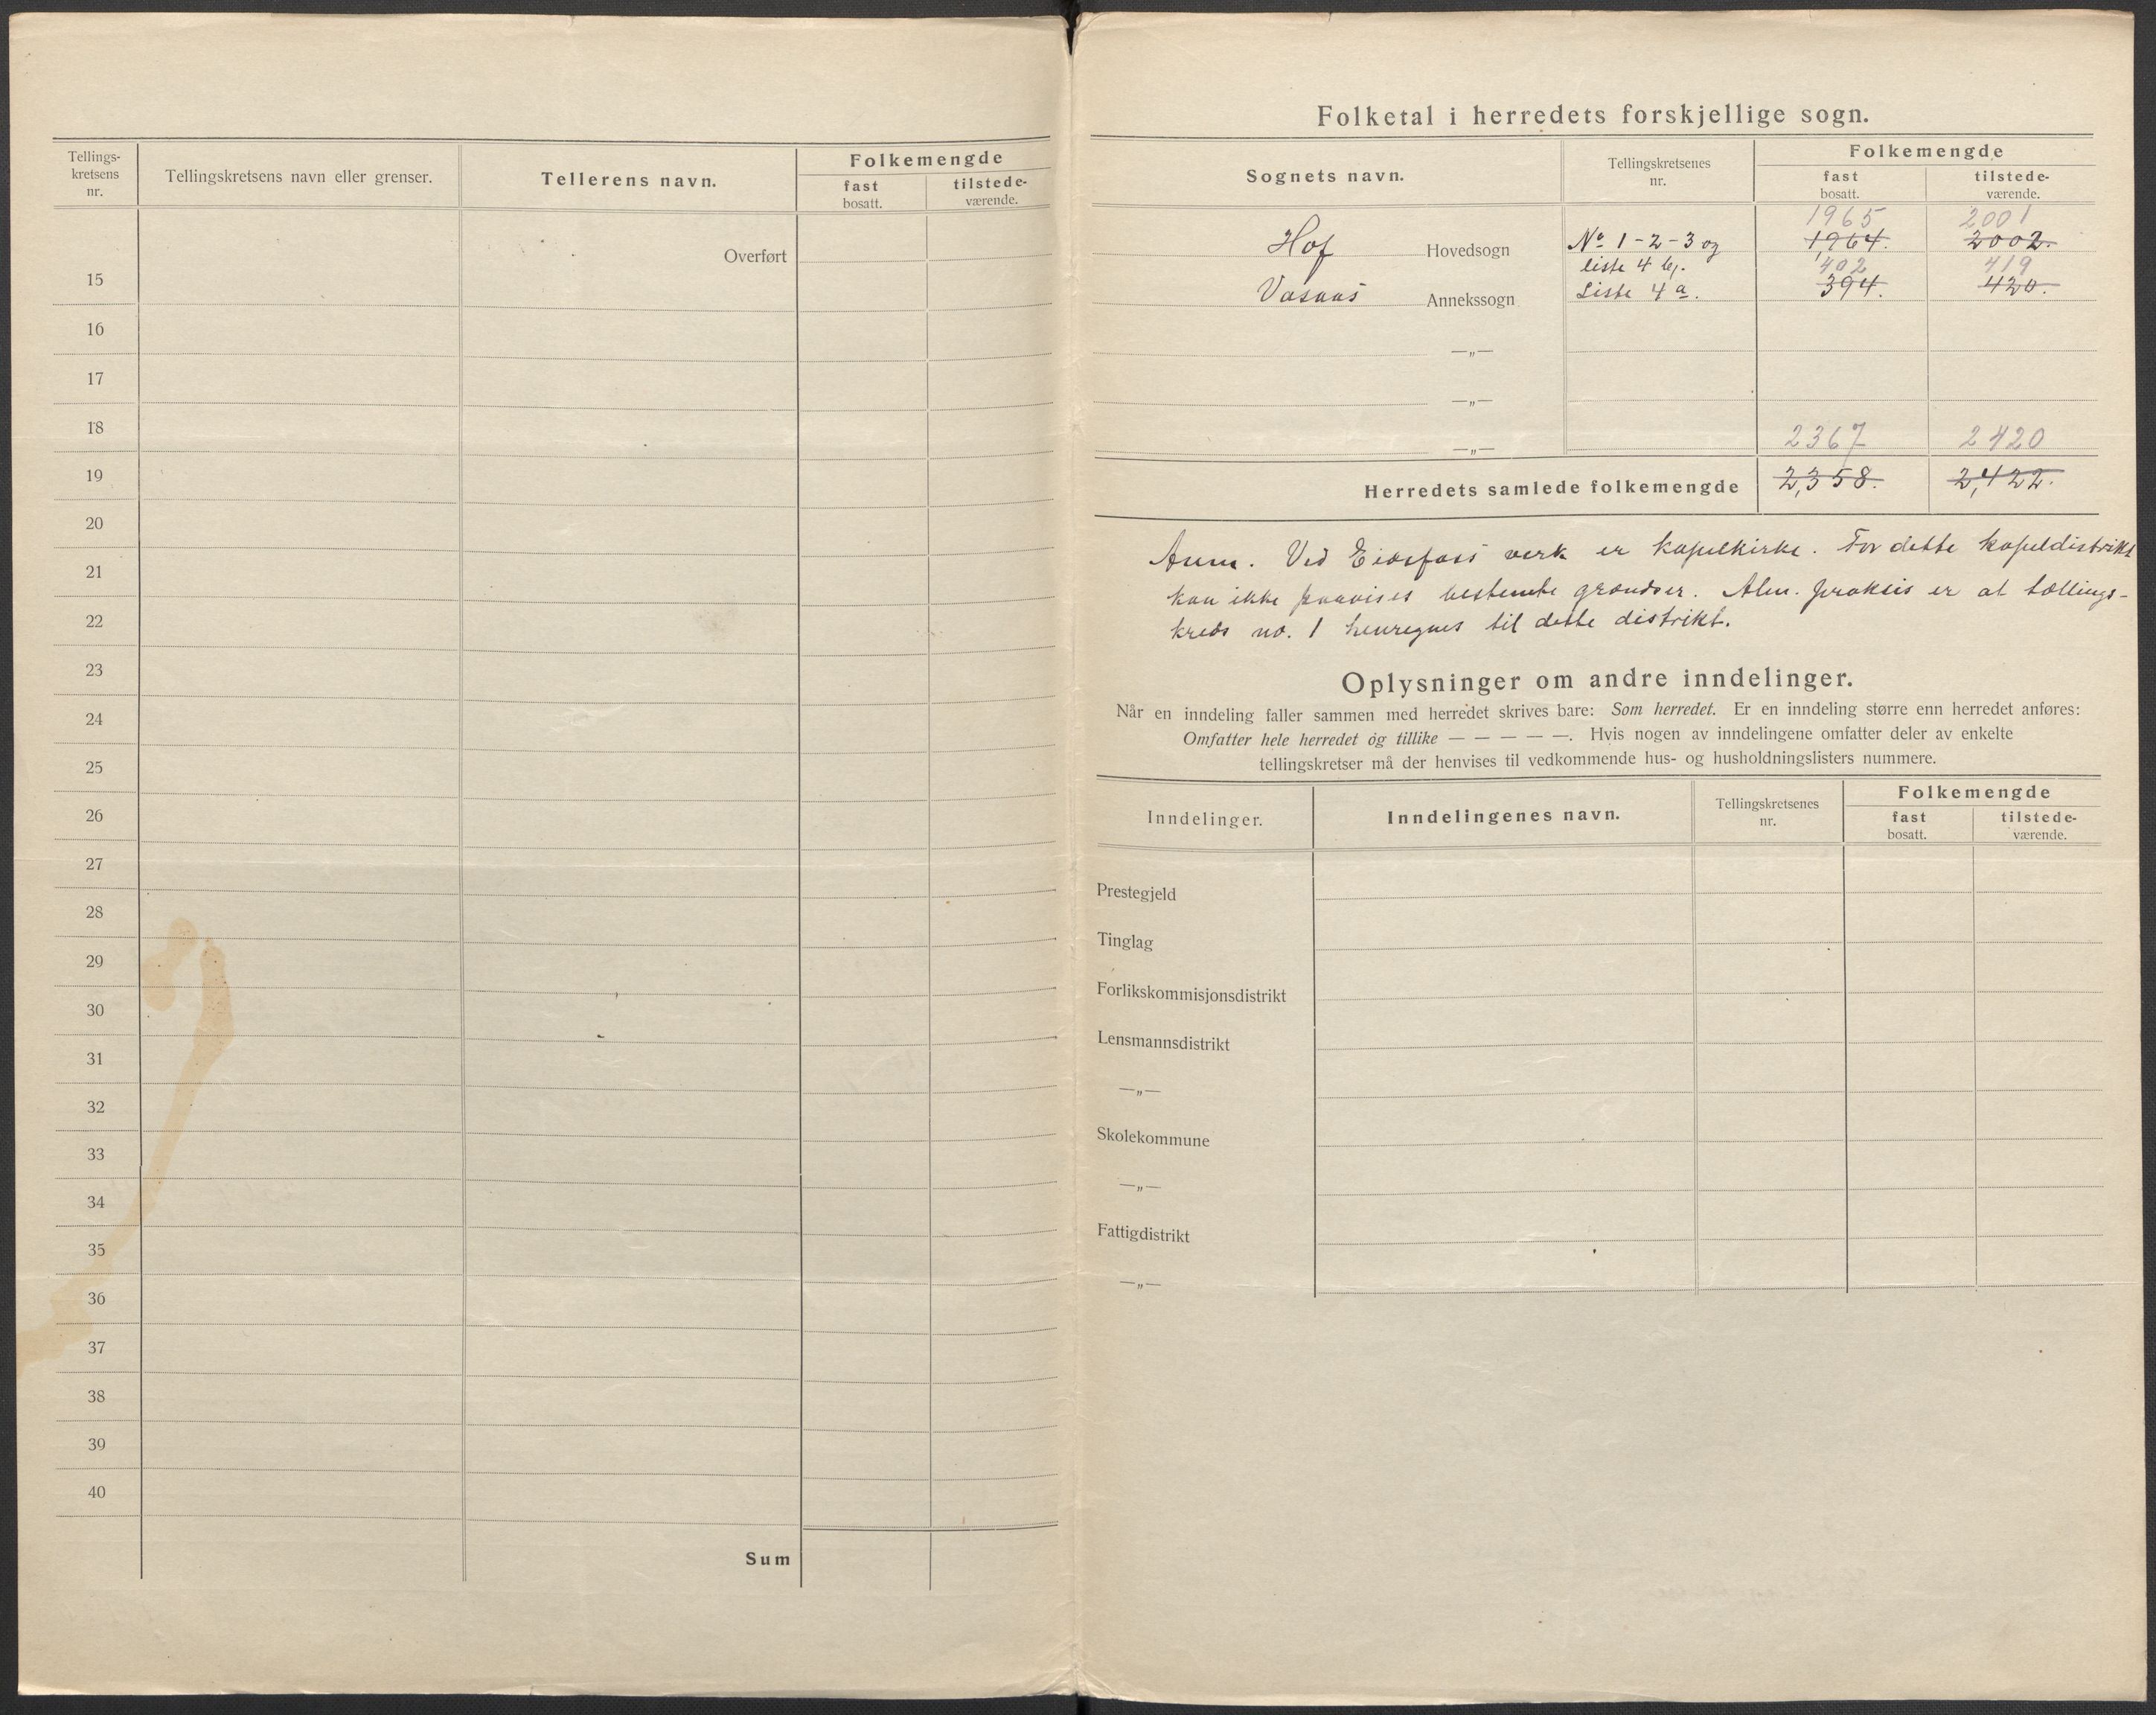 Tellings-
kretsens
nr.
Tellingskretsens navn eller grenser.
Tellerens navn.
Folkemengde
fast
bosatt.
tilstede-
værende.
Overført
15
16
17
18
19
20
21
22
23
24
25
26
27
28
29
30
31
32
33
34
35
36
37
38
39
40
Sum
Folketal i herredets forskjellige sogn.
Sognets navn.
Tellingskretsenes
nr.
Folkemengde
fast
bosatt.
tilstede-
værende.
1965 2001
Hof Hovedsogn No 1-2-3 og 1964. 2002.
liste 4 b. 402 419
Vasaas Annekssogn Liste 4 a. 394. 420.
—„—
—„—
2367 2420
—„—
Herredets samlede folkemengde 2,358. 2,422.
Anm. Ved Eidsfoss verk er kapelkirke. For dette kapeldistrikt
kan ikke paavises bestemte grændser. Alm. praksis er at tællings-
kreds no. 1 henregnes til dette distrikt.
Oplysninger om andre inndelinger.
Når en inndeling faller sammen med herredet skrives bare: Som herredet. Er en inndeling større enn herredet anføres:
Omfatter hele herredet óg tillike — — — — —. Hvis nogen av inndelingene omfatter deler av enkelte
tellingskretser må der henvises til vedkommende hus- og husholdningslisters nummere.
Inndelinger.
Inndelingenes navn.
Tellingskretsenes
nr.
Folkemengde
fast
bosatt.
tilstede-
værende.
Prestegjeld
Tinglag
Forlikskommisjonsdistrikt
Lensmannsdistrikt
—„—
Skolekommune
—„—
Fattigdistrikt
—„—